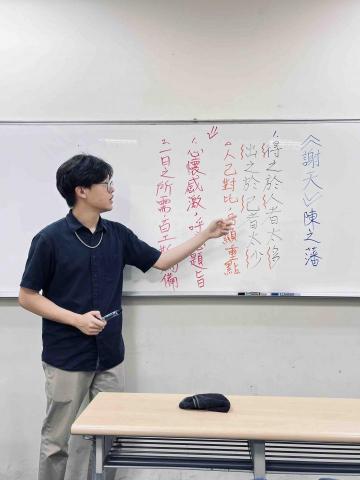 《謝天》陳之藩
1.得之於人者太多
出之於己者太少
2.人己對比,顯重點
1.心懷感激,呼題旨
2.一日之所需,百工斯為備